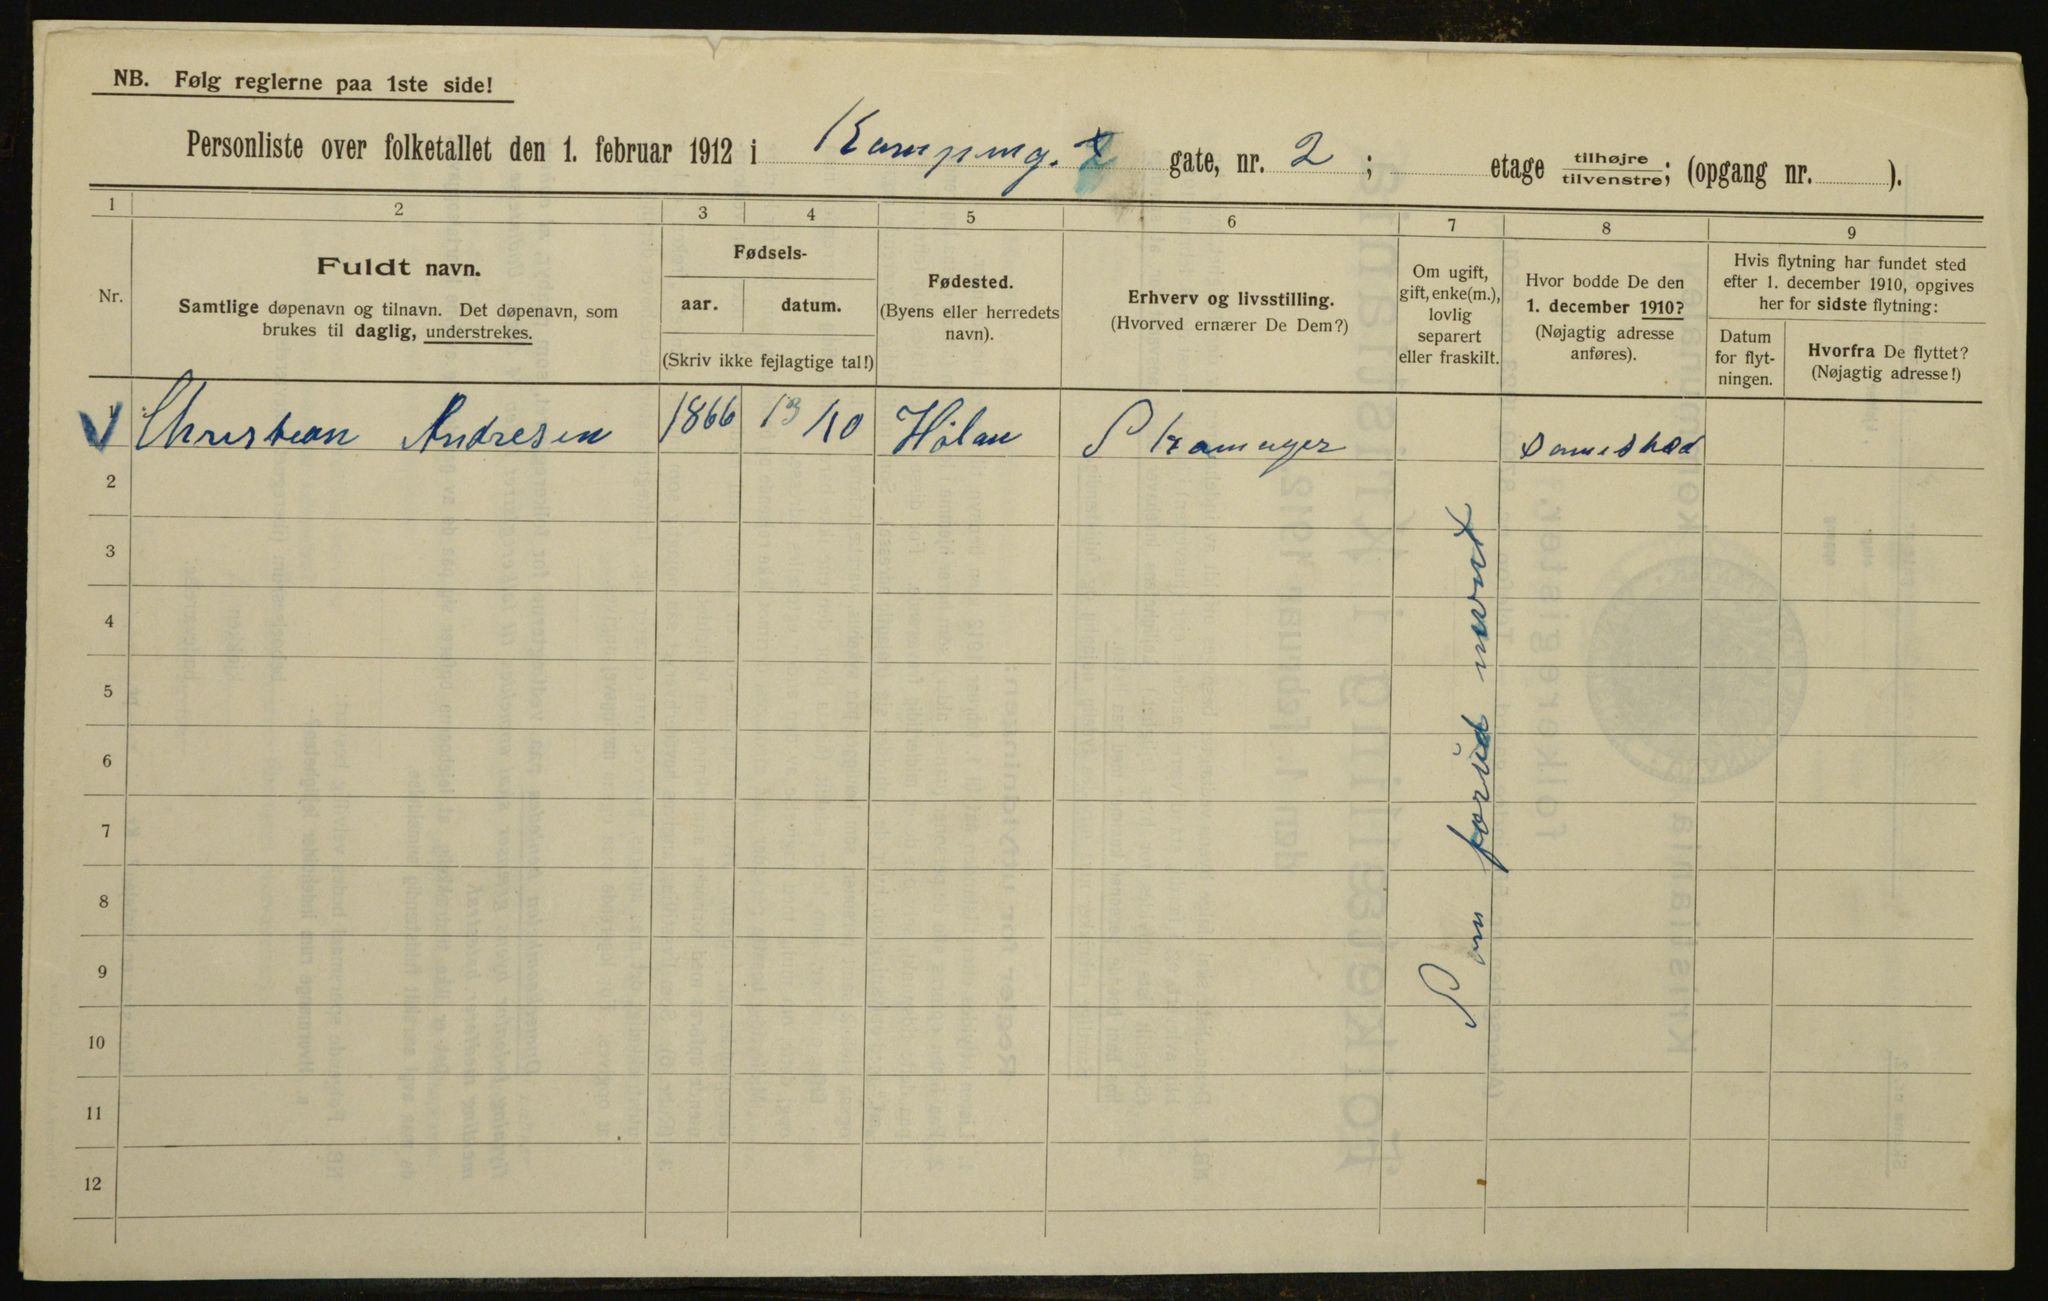 NB. Følg reglerne paa 1ste side!
Personliste over folketallet den 1. februar 1912 i Kampeng. gate, nr. 2; etage tilhøjre tilvenstre; (opgang nr. ).
1 2 3 4 5 6 7 8 9
Nr.
Fuldt navn.
Samtlige døpenavn og tilnavn. Det døpenavn, som
brukes til daglig, understrekes.
Fødsels-
aar. datum.
(Skriv ikke fejlagtige tal!)
Fødested.
(Byens eller herredets
navn).
Erhverv og livsstilling.
(Hvorved ernærer De Dem?)
Om ugift,
gift, enke(m.),
lovlig
separert
eller fraskilt.
Hvor bodde De den
1. december 1910?
(Nøjagtig adresse
anføres).
Hvis flytning har fundet sted
efter 1. december 1910, opgives
her for sidste flytning:
Datum
for flyt-
ningen.
Hvorfra De flyttet?
(Nøjagtig adresse!)
1 Christian Andresen 1866 13/10 Hølan Skomager Sammested
2
3
4
5
6
7
8
9
10
11
12
Som forud nævnt